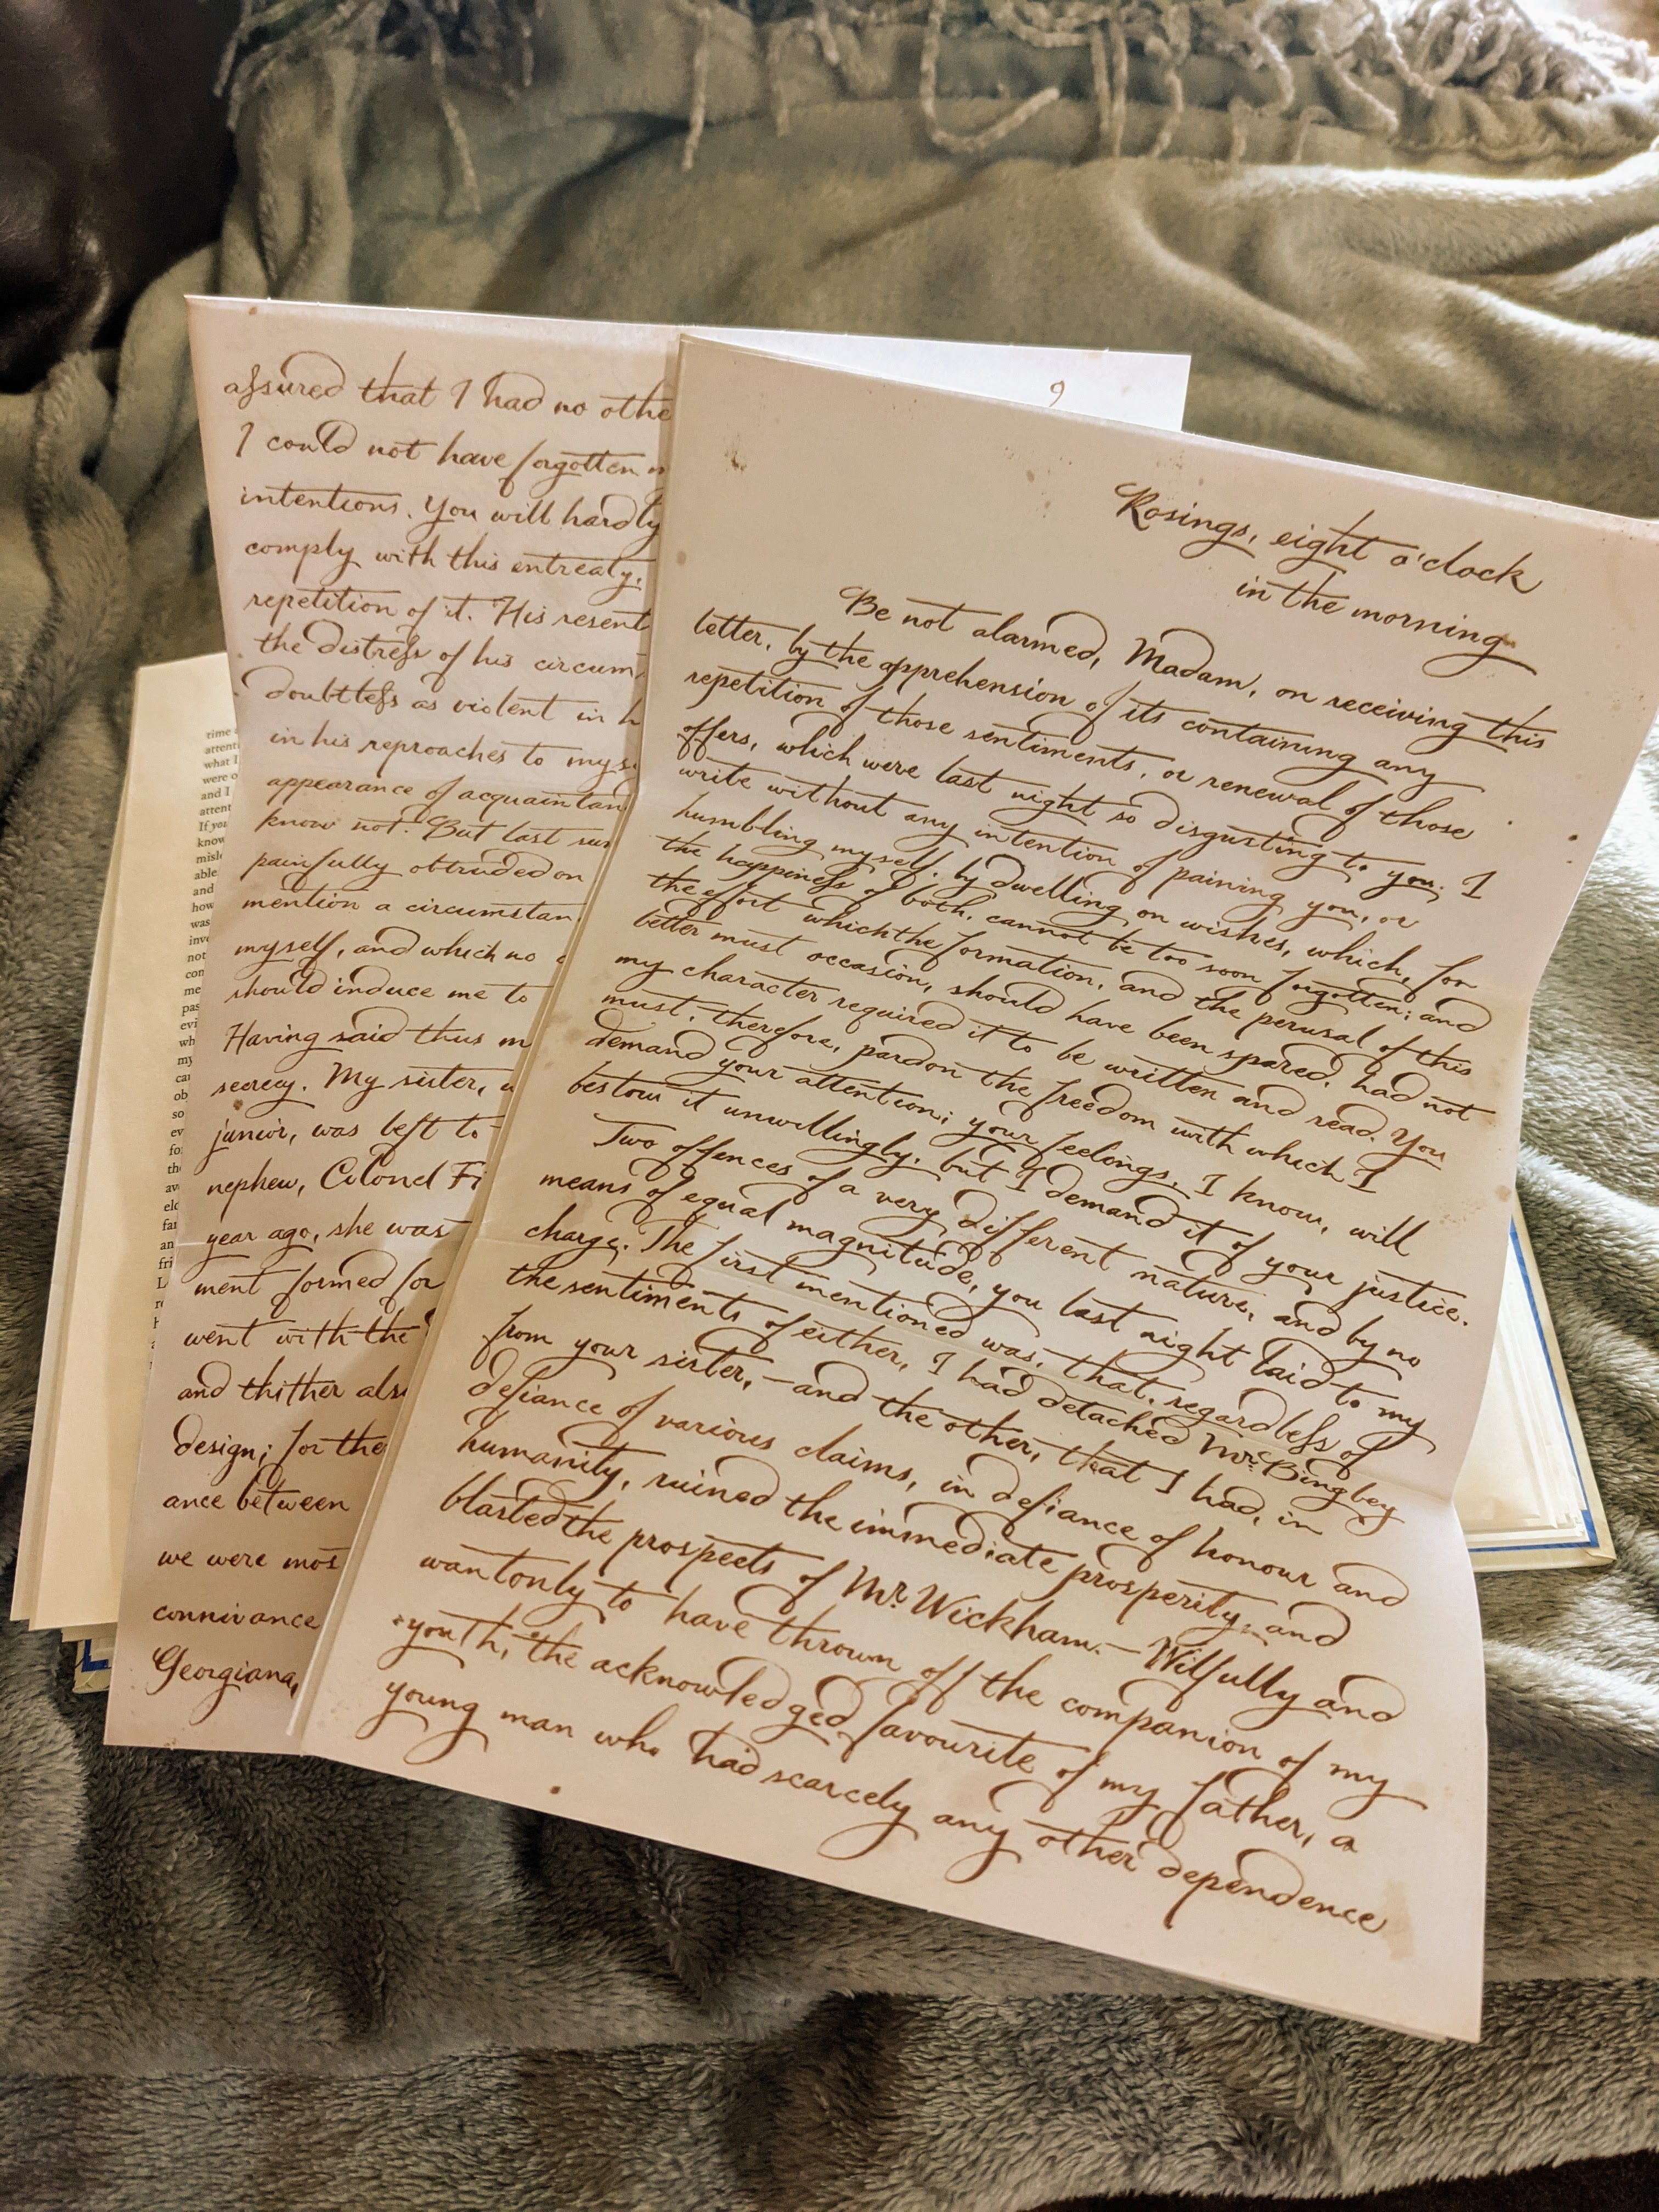 assured that I had no othe
I could not have forgotten
intentions. You will hardly
comply with this entreaty,
repetition of it. His resent
the distress of his circum
doubtless as violent in h
in his reproaches to mys
appearance of acquaintan
know not. But last su
painfully obtruded on
mention a circumstan
myself, and which no
should induce me to
Having said thus m
secrecy. My sister,
junior, was left to
nephew, Colonel Fi
year ago, she was
ment formed for
went with the
and thither also
design; for the
ance between
we were mos
connivance
Georgiana,
Rosings, eight o'clock
in the morning
Be not alarmed, Madam, on receiving this
letter, by the apprehension of its containing any
repetition of those sentiments, or renewal of those
offers, which were last night so disgusting to you. I
write without any intention of paining you, or
humbling myself, by dwelling on wishes, which, for
the happiness of both, cannot be too soon forgotten; and
the effort which the formation, and the perusal of this
letter must occasion, should have been spared, had not
my character required it to be written and read. You
must, therefore, pardon the freedom with which I
demand your attention; your feelings, I know, will
bestow it unwillingly, but I demand it of your justice.
Two offences of a very different nature, and by no
means of equal magnitude, you last night laid to my
charge. The first mentioned was, that, regardless of
the sentiments of either, I had detached Mr. Bingley
from your sister,—and the other, that I had, in
defiance of various claims, in defiance of honour and
humanity, ruined the immediate prosperity, and
blasted the prospects of Mr. Wickham.—Wilfully and
wantonly to have thrown off the companion of my
youth, the acknowledged favourite of my father, a
young man who had scarcely any other dependence
time
attent
what I
were o
and I
attent
If you
know
misl
able
and
how
was
inv
not
con
me
pas
evi
wh
my
ca
ob
so
ev
fo
th
av
fa
an
fri